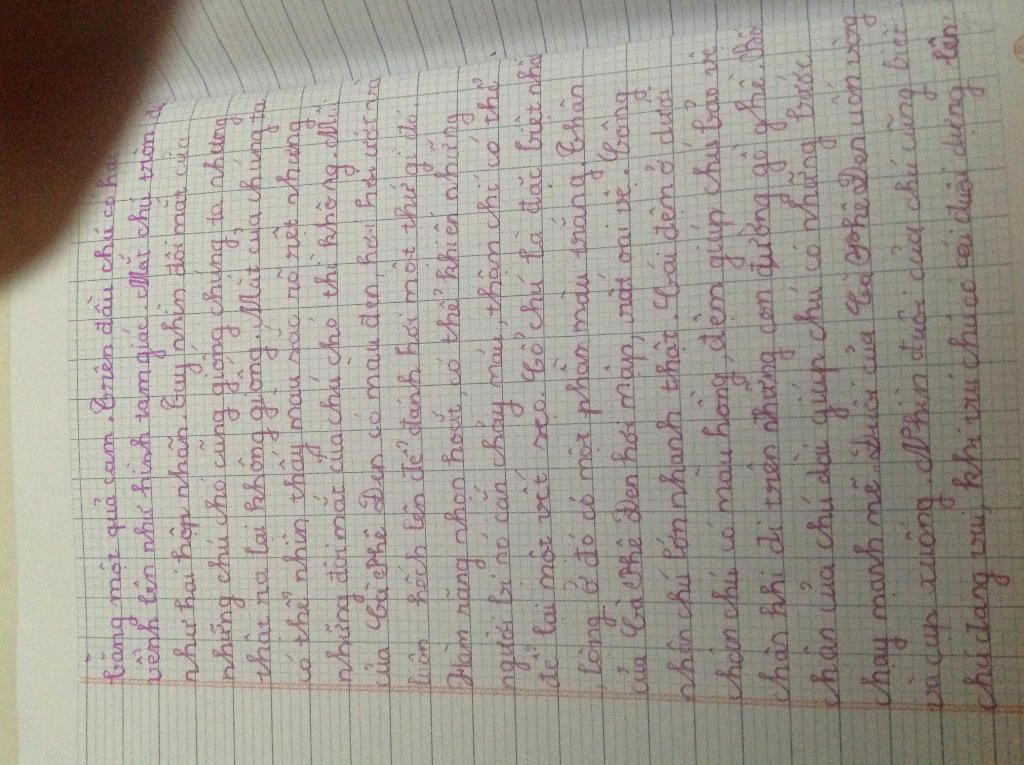 bằng một quả cam. Trên đầu chú có hai
vểnh lên như hình tam giác. Mắt chú tròn
như hai hộp nhãn. Tuy nhiên đôi mắt của
những chú chó cũng giống chúng ta nhưng
thật ra lại không giống. Mắt của chúng ta
có thể nhìn thấy màu sắc rõ rệt nhưng
những đôi mắt của chú chó thì không. Mũi
của Cà Phê Đen có màu đen, hơi hơi ướt và
luôn hếch lên để đánh hơi một thứ gì đó.
Hàm răng nhọn hoắt, có thể khiến những
người bị nó cắn chảy máu, thậm chí có thể
để lại một vết sẹo. Cổ chú là đặc biệt nhất
, lông ở đó có một phần màu trắng. Thân
của Cà Phê Đen hơi mập, rất oai vệ. Trông
nhìn chú lớn nhanh thật. Cái đệm ở dưới
chân chú có màu hồng, đệm giúp chú bảo vệ
chân khi đi trên những con đường gồ ghề.
chân của chú dài giúp chú có những bước
chạy mạnh mẽ. Đuôi của Cà Phê Đen uốn vòng
và cụp xuống. Nhìn đuôi của chú cũng biết
chú đang vui, khi vui chú có cái đuôi dựng lên